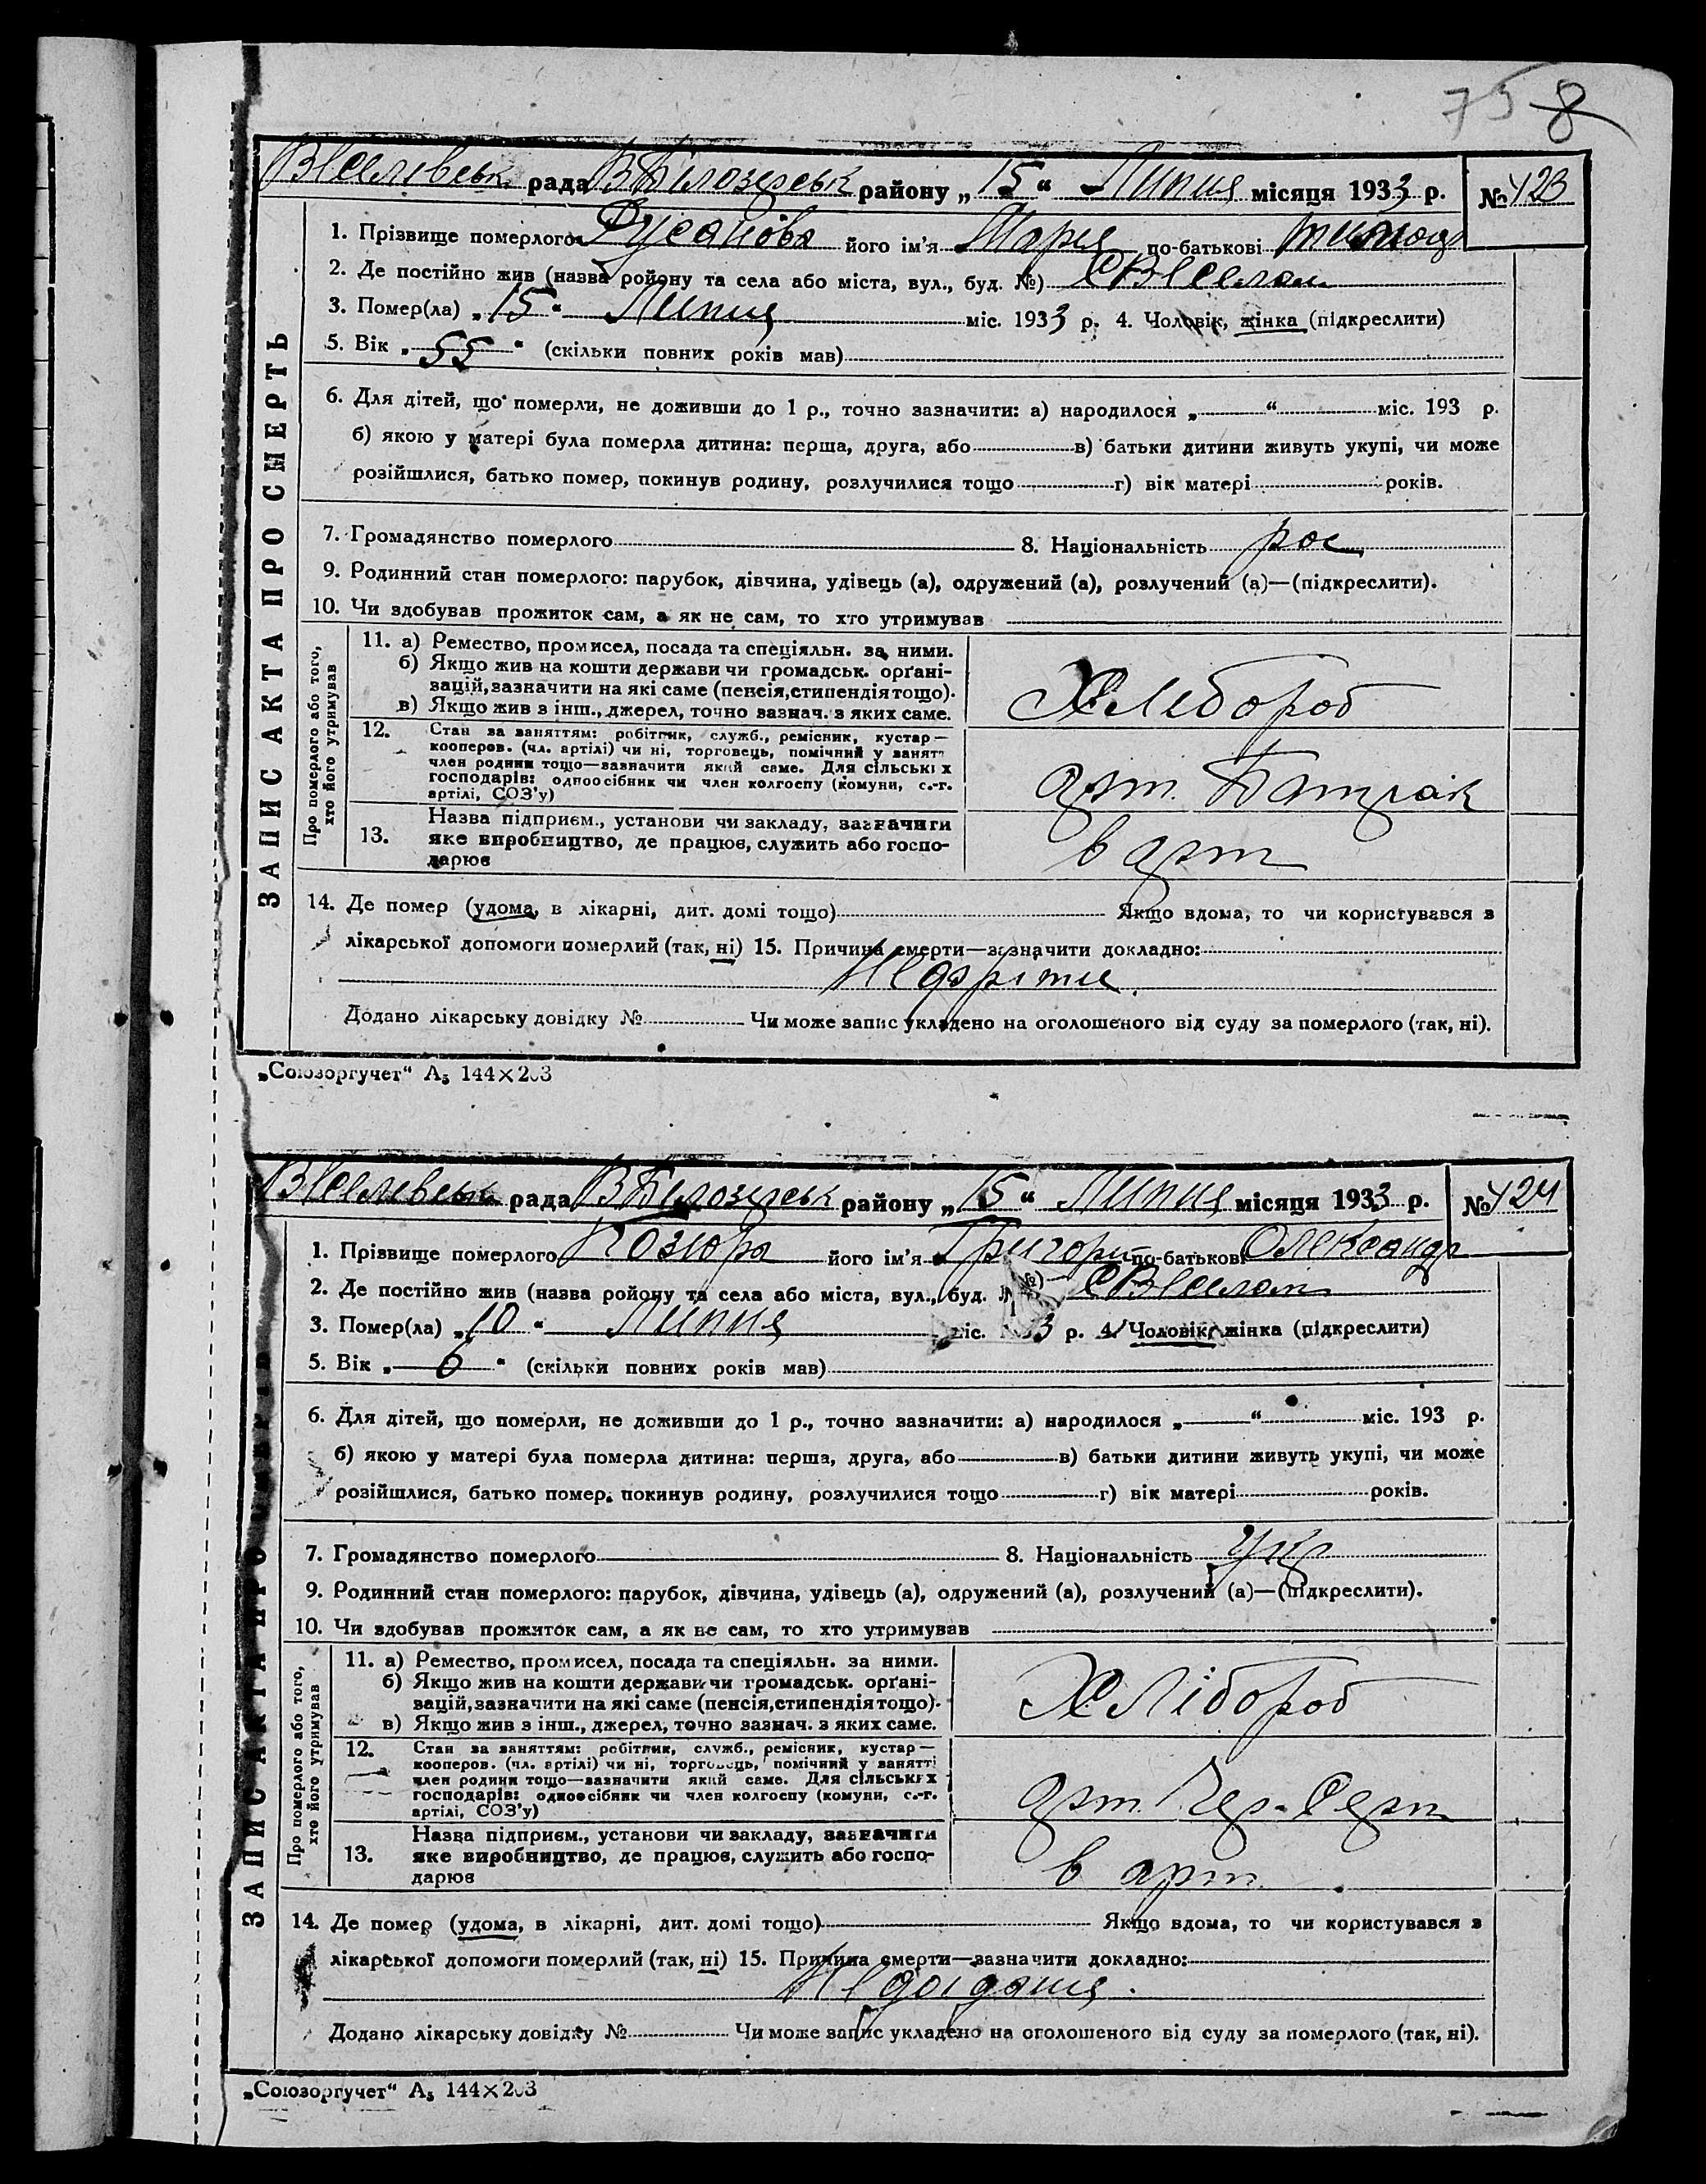 75 8
рада В Білозерськ району „15“ Липня місяця 1933 р. № 423
ЗАПИС АКТА ПРО СМЕРТЬ
1. Прізвище померлого Русанова його ім'я Марія по-батькові
2. Де постійно жив (назва ройону та села або міста, вул., буд. №)
3. Помер(ла) „15“ Липня міс. 1933 р. 4. Чоловік, жінка (підкреслити)
5. Вік „55“ (скільки повних років мав)
6. Для дітей, що померли, не доживши до 1 р., точно зазначити: а) народилося „ “ міс. 193 р.
б) якою у матері була померла дитина: перша, друга, або в) батьки дитини живуть укупі, чи може
розійшлися, батько помер, покинув родину, розлучилися тощо г) вік матері років.
7. Громадянство померлого 8. Національність рос
9. Родинний стан померлого: парубок, дівчина, удівець (а), одружений (а), розлучений (а)—(підкреслити).
10. Чи здобував прожиток сам, а як не сам, то хто утримував
Про померлого або того,
хто його утримував
11. а) Ремество, промисел, посада та спеціяльн. за ними.
б) Якщо жив на кошти держави чи громадськ. орґані-
зацій, зазначити на які саме (пенсія, стипендія тощо).
в) Якщо жив з інш., джерел, точно зазнач. з яких саме.
Хлебороб
12. Стан за заняттям: робітник, служб., ремісник, кустар—
кооперов. (чл. артілі) чи ні, торговець, помічний у занятт
член родини тощо—зазначити який саме. Для сільських
господарів: одноосібник чи член колгоспу (комуни, с.-г.
артілі, СОЗ'у)
арт. Батрак
13. Назва підприєм., установи чи закладу, зазначити
яке виробництво, де працює, служить або госпо-
дарює
в арт
14. Де помер (удома, в лікарні, дит. домі тощо) Якщо вдома, то чи користувався з
лікарської допомоги померлий (так, ні) 15. Причина смерти—зазначити докладно:
Додано лікарську довідку № Чи може запис укладено на оголошеного від суду за померлого (так, ні).
„Союзоргучет“ А₅ 144×203
рада В Білозерськ району „15“ Липня місяця 1933 р. № 424
ЗАПИС АКТА ПРО СМЕРТЬ
1. Прізвище померлого Козюра його ім'я Григорій по-батькові Олександр
2. Де постійно жив (назва ройону та села або міста, вул., буд. №)
3. Помер(ла) „10“ Липня міс. 1933 р. 4. Чоловік, жінка (підкреслити)
5. Вік „6“ (скільки повних років мав)
6. Для дітей, що померли, не доживши до 1 р., точно зазначити: а) народилося „ “ міс. 193 р.
б) якою у матері була померла дитина: перша, друга, або в) батьки дитини живуть укупі, чи може
розійшлися, батько помер, покинув родину, розлучилися тощо г) вік матері років.
7. Громадянство померлого 8. Національність укр
9. Родинний стан померлого: парубок, дівчина, удівець (а), одружений (а), розлучений (а)—(підкреслити).
10. Чи здобував прожиток сам, а як не сам, то хто утримував
Про померлого або того,
хто його утримував
11. а) Ремество, промисел, посада та спеціяльн. за ними.
б) Якщо жив на кошти держави чи громадськ. орґані-
зацій, зазначити на які саме (пенсія, стипендія тощо).
в) Якщо жив з інш., джерел, точно зазнач. з яких саме.
Хлібороб
12. Стан за заняттям: робітник, служб., ремісник, кустар—
кооперов. (чл. артілі) чи ні, торговець, помічний у занятті
член родини тощо—зазначити який саме. Для сільських
господарів: одноосібник чи член колгоспу (комуни, с.-г.
артілі, СОЗ'у)
арт.
13. Назва підприєм., установи чи закладу, зазначити
яке виробництво, де працює, служить або госпо-
дарює
в арт.
14. Де помер (удома, в лікарні, дит. домі тощо) Якщо вдома, то чи користувався з
лікарської допомоги померлий (так, ні) 15. Причина смерти—зазначити докладно:
Недоїдання.
Додано лікарську довідку № Чи може запис укладено на оголошеного від суду за померлого (так, ні).
„Союзоргучет“ А₅ 144×203